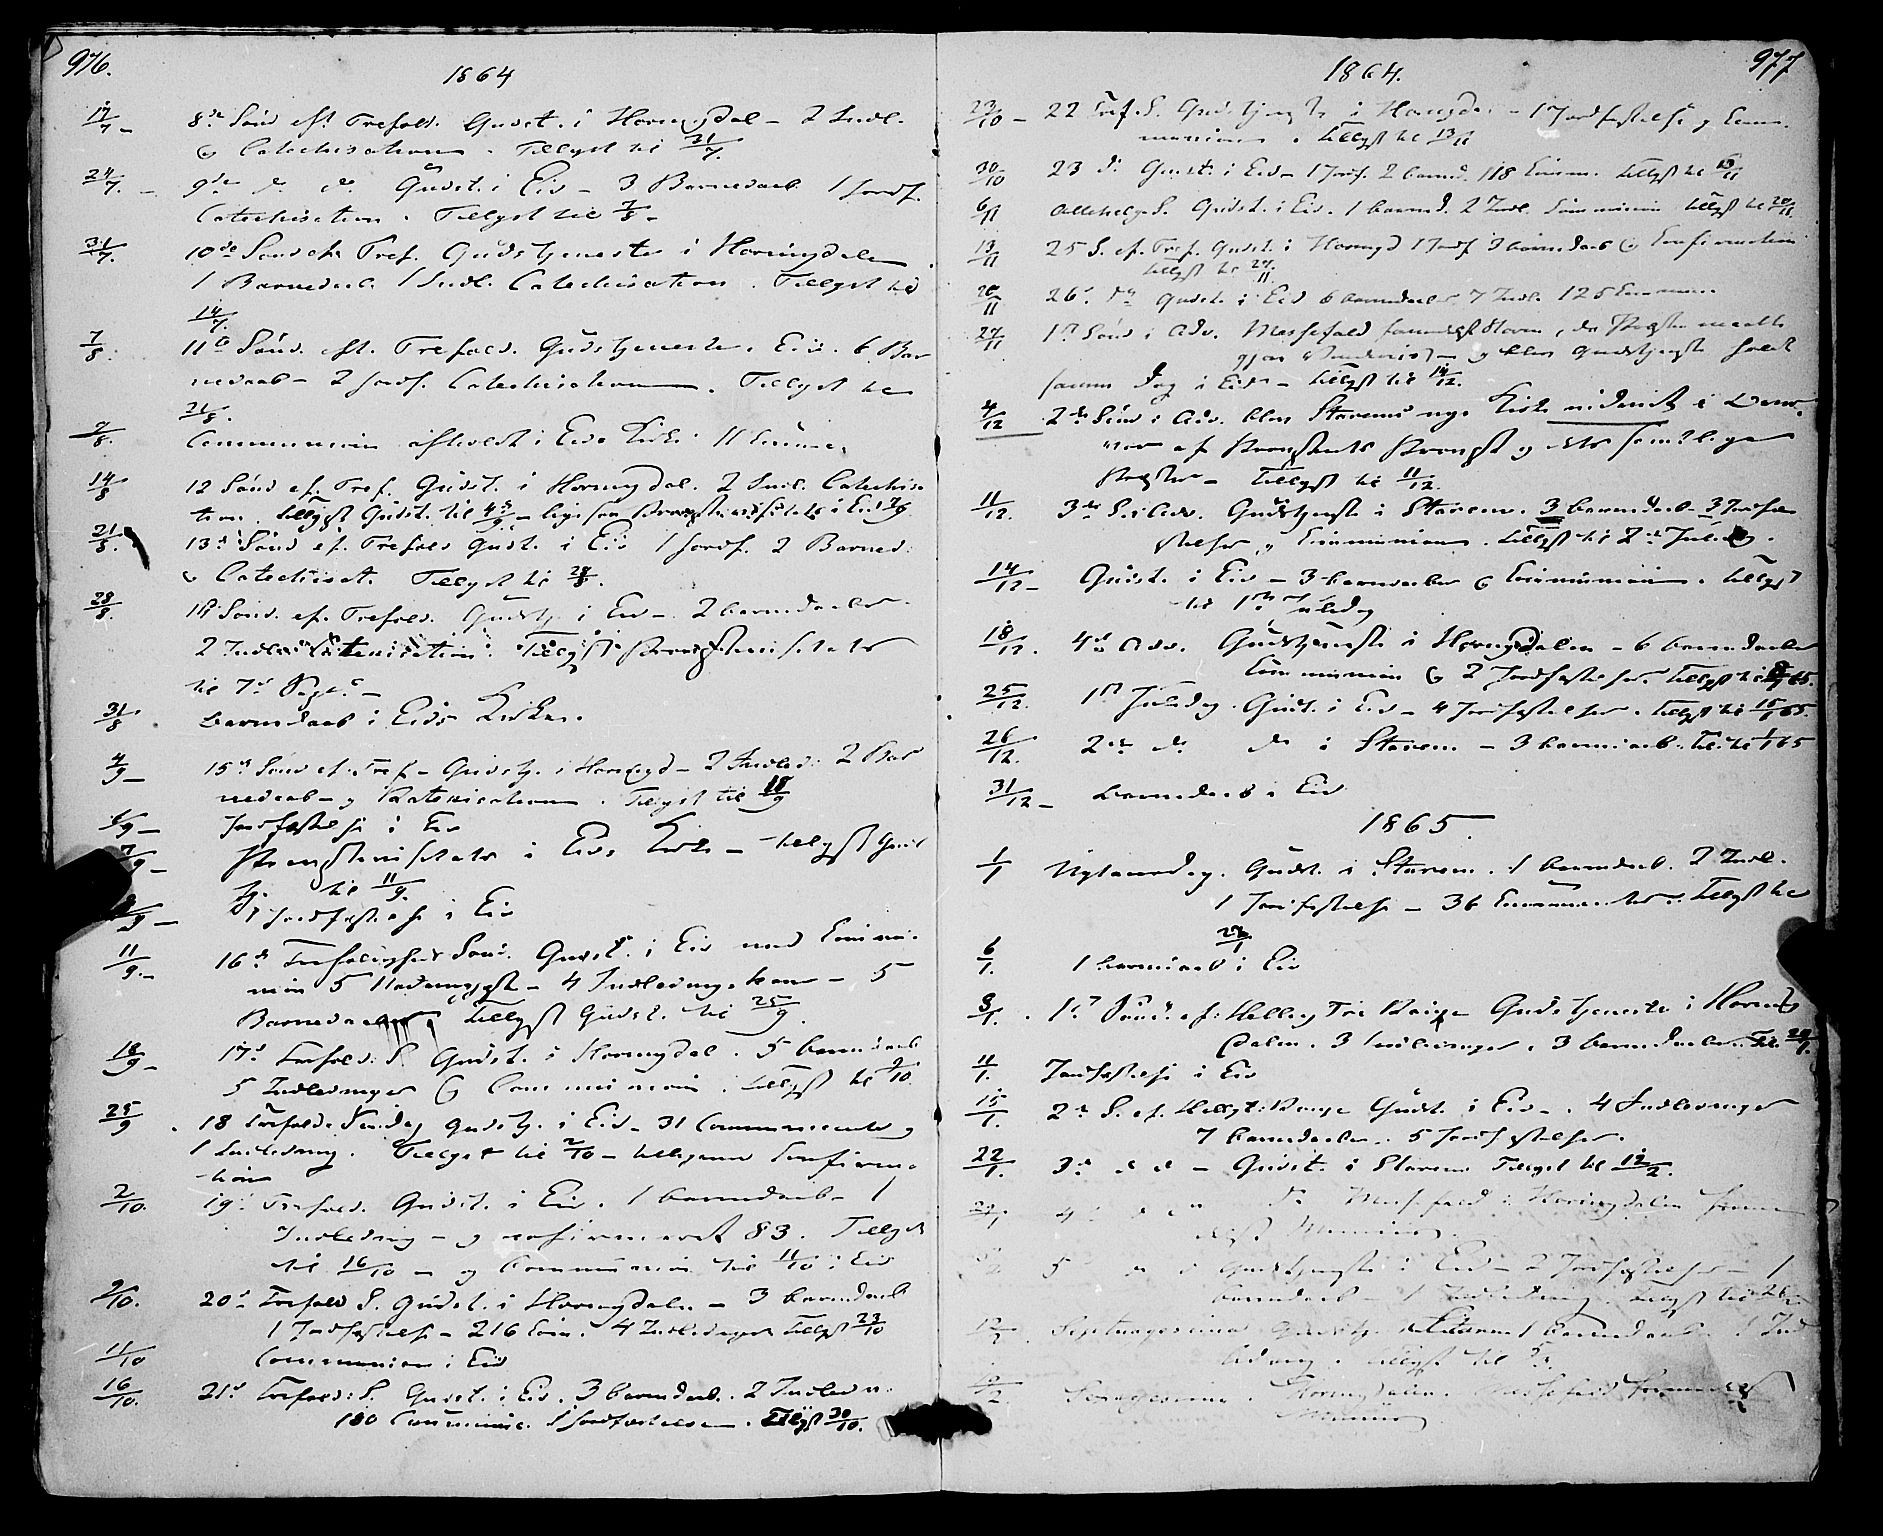 976.
1864
17/7 - 8de Sønd eft Trefold. Gudst. i Horningdal - 2 Indl.
& Catechisation. Tillyst til 31/7.
24/7. - 9de do do Gudst. i Eid - 3 Barnedaab 1 Jordf.
Catechisation. Tillyst til 7/8 -
31/7. 10de Sønd eft Tref. Gudstjeneste i Horningdalen
1 Barnedaab. 1 Indl. Catechisation. Tillyst til
14/7.
7/8. 11te Sønd. eft. Trefold. Gudstjeneste i Eid. 6 Bar
nedaab - 2 Jordf. Catechisation. Tillyst til
21/8.
7/8. Communion afholdt i Eids Kirke 11 Comm.
14/8 12 Sønd ef. Tref. Gudst. i Horningdal. 2 Indl. Catechisa
tion. Tillyst Gudst. til 4/9 - ligesaa Provstevisitats i Eid 7/9
21/8. 13de Sønd ef. Trefold Gudst. i Eid 1 Jordf. 2 Barned.
& Catechisat. Tillyst til 28/8.
28/8. 14 Sønd. ef. Trefold. Gudstj. i Eid - 2 barnedaaber.
2 Indl. Catechisation. Tillyst Provstevisitats
til 7de Sept. -
31/8. barnedaab i Eids Kirke.
4/9 - 15de Sønd ef. Tref - Gudstj. i Horningd - 2 Indled. 2 Bar
nedaab - og Katekisation. Tillyst til 18/9
Jordfæstelse i Eid
7/9 - Provstevisitats i Eids Kirke - tillyst Gudst
tj. til 11/9.
/9 - 1 Jordfæstelse i Eid
11/9. - 16de Trefoldigheds Sønd. Gudst. i Eid med Commu-
nion 5 - 4 Indledningskoner - 5
Barnedaaber, tillyst Gudst. til 25/9.
18/9 - 17de Trefold. S. Gudst. i Horningdal. 5 barnedaab
5 Indledninger & Communion. tillyst til 9/10.
25/9. 18 Trefold. Søndag Gudstj. i Eid - 31 Communicanter og
1 Indledning. Tillyst til 2/10 - tilligemed Confirma-
tion
2/10. 19de Trefold. Gudst. i Eid. 1 barnedaab - 1
Indledning - og confirmeret 83. Tillyst
til 16/10 - og Communion til 11/10 i Eid
9/10. 20de Trefold S. Gudst. i Horningdalen - 3 barnedaab
1 Jordfæstelse - 216 Com. 4 Indledninger tillyst 23/10
11/10 Communion i Eid
16/10. 21de Trefold. S. Gudst. i Eid. 3 barnedaab. 2 Indledn.
180 Communic. 1 Jordfæstelse. Tillyst 30/10.
977
1864.
23/10 - 22 Tref. S. Gudstjenest i Horningdal - 1 Jordfæstelse og Com-
munion. tillyst til 13/11
30/10 23 do Gudst. i Eid - 1 Jordf. 2 barned. 118 Comm. tillyst til
6/11 Allehelg. S. Gudst. i Eid. 1 barned. 2 Indl. Communion tillyst til 20/11.
13/11 25 S. ef. Tref. Gudst. i Horningd 1 Jordf 3 barnedaab & Confirmation
tillyst til 27/11.
20/11 26. do Gudst. i Eid 6 barnedaaber 7 Indl. 125 Commun.
27/11 1ste Sønd i Adv. Messefald formedelst Storm, da Præsten maatte
- og blev Gudstjeneste holdt
samme Dag i Eid - tillyst til 14/12.
4/12 2den Sønd i Adv. blev Starems nye Kirke indviet i
af Provstiets Provst og dets samtlige
Præster - tillyst til 11/12.
11/12. 3de S. i Adv. Gudstjeneste i Starem. 3 barnedaab 3 Jordfæ-
stelser, Communion. tillyst til 2den Juledag.
14/12 - Gudst. i Eid - 3 barnedaaber & Communion. tillyst
til 1ste Juledag
18/12. 4de Adv. Gudstjeneste i Horningdalen - 6 barnedaaber
Communion & 2 Jordfæstelser. tillyst til 65.
25/12. 1ste Juledag. Gudst. i Eid - 4 Jordfæstelser. tillyst til 15/1 65.
26/12. 2den do do i Starem - 3 barnedaab. til 1/1 65
31/12 - barnedaab i Eid
1865.
1/1 Nytaarsdag. Gudst. i Starem. 1 barnedaab. 2 Indl.
1 Jordfæstelse - 36 Communicanter. tillyst til
22/1
6/1. 1 barnedaab i Eid
8/1. 1ste Sønd. ef. Hellig Tre Konge Gudstjeneste i Horning
dalen. 3 Indledninger. 3 barnedaaber. til 29/1.
11/1. Jordfæstelse i Eid
15/1. 2de S. ef. Hellgt. Konge Gudst. i Eid -. 4 Indledninger
7 barnedaaber. 5 Jordfæstelser.
22/1. 3de do do - Gudst. i Starem Tillyst til 12/2.
29/1 4 do do Messefald i Horningdalen forme
delst
5 do Gudstjeneste i Eid - 2 Jordfæstelser - 1
barnedaab - 1 Indledning. tillyst til 26/2
12/2. Septuagesima Gudstj. i Starem 1 barnedaab. 1 Ind
ledning. tillyst til 5/3.
19/2 Sexagesima. Horningdalen. Messefald formedelst